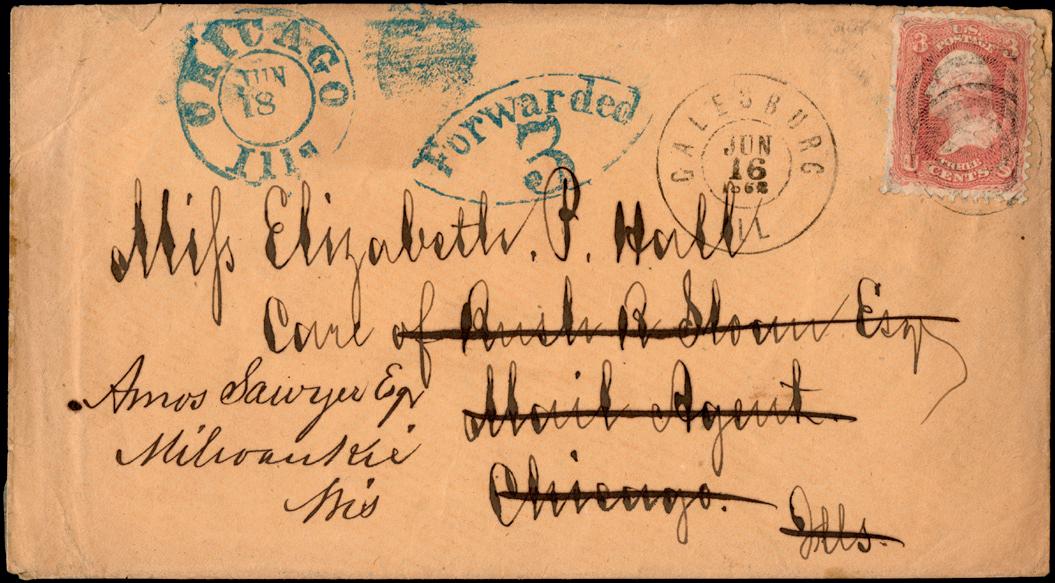 CHICAGO
JUN
18
Ill
Forwarded
3
GALESBURG
JUN
16
1862
IL
3
U.S.
POSTAGE
THREE
CENTS
Miss Elizabeth. P. Hall
Care of Rush R Sloan Esq
Mail Agent.
Chicago.
Ills.
Amos Sawyer Esqr
Milwaukie
Wis